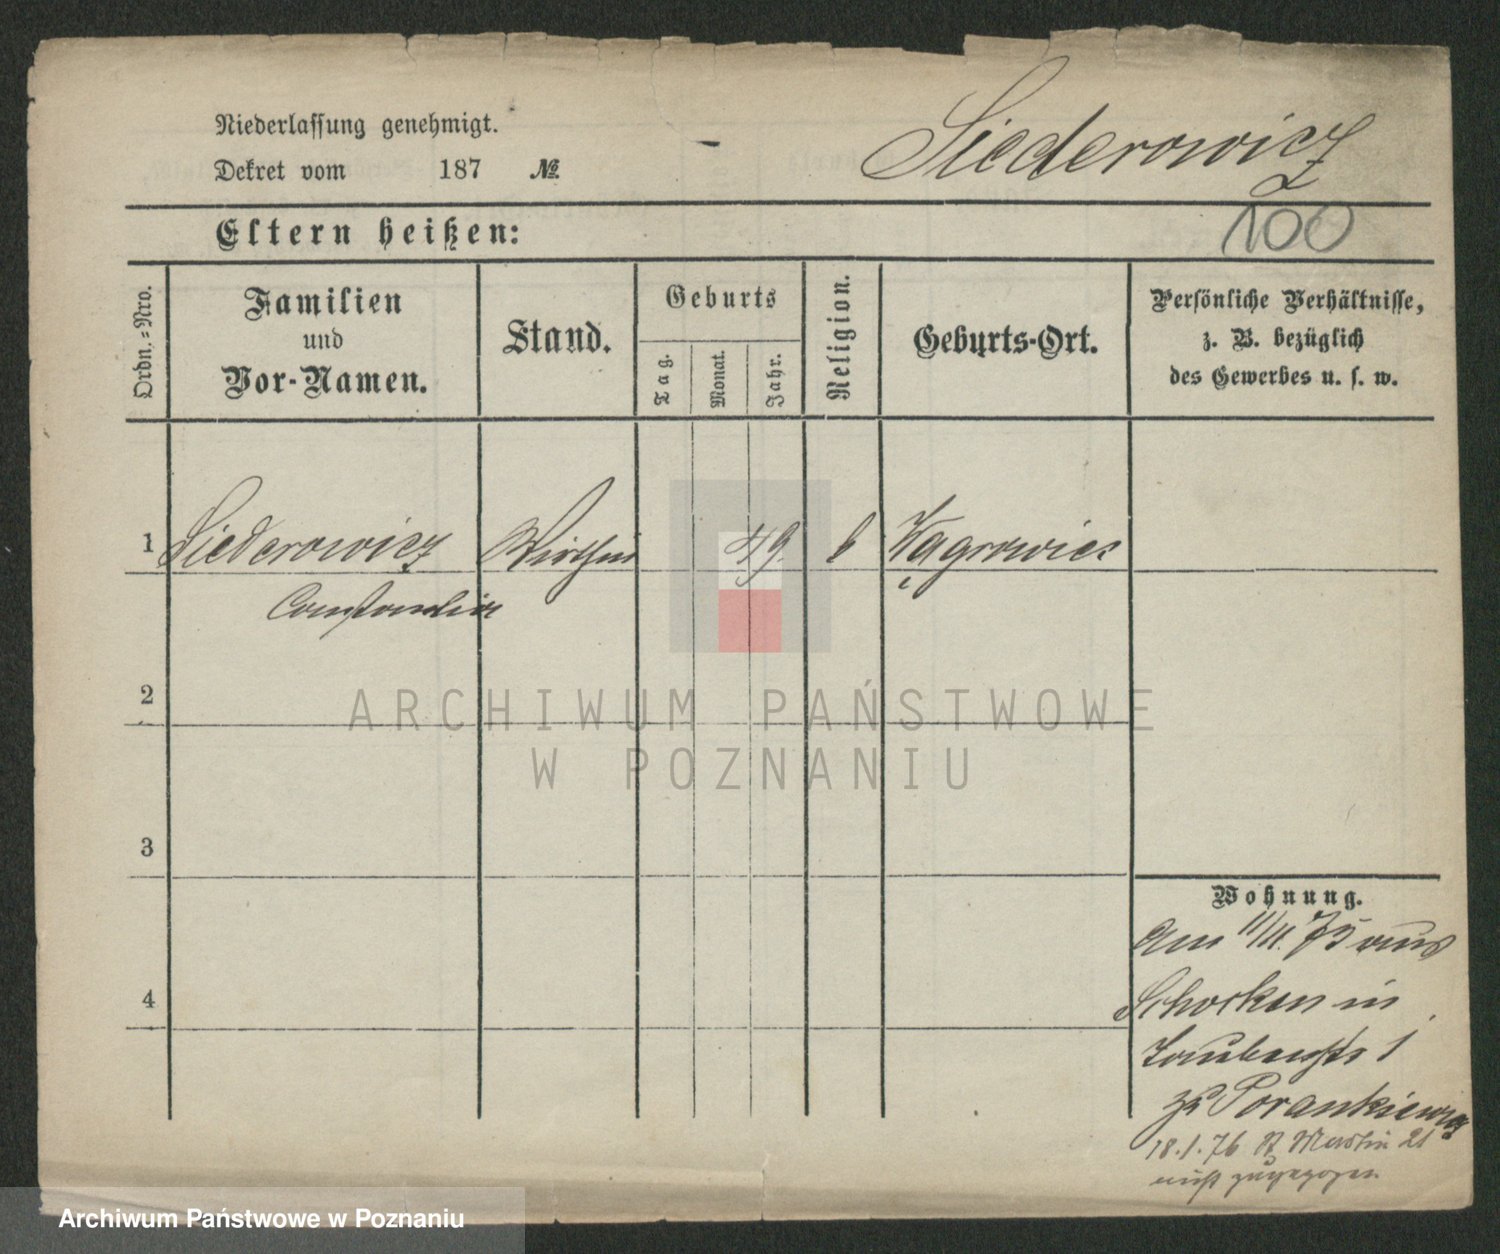 Niederlassung genehmigt.
Dekret vom 187 №
Siederowicz
100
Eltern heißen:
Ordn.-Nro.
Familien
und
Vor-Namen.
Stand.
Geburts
Tag.
Monat.
Jahr.
Religion.
Geburts-Ort.
Persönliche Verhältnisse,
z. B. bezüglich
des Gewerbes u. s. w.
1 Siederowicz Wirthin 49. k Wągrowiec
Constantia
2
ARCHIWUM PAŃSTWOWE
W POZNANIU
3
4
Wohnung.
Am 11/11. 75 aus
Schocken in
1
zu Porankiewicz
18.1.76 St Martin 21
nicht zugezogen.
Archiwum Państwowe w Poznaniu